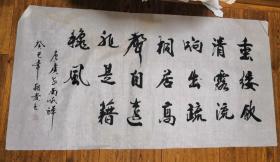 垂緌飲
清露流
响出疏
桐居高
聲自遠
非是藉
穐風
唐虞世南咏蟬
癸巳年